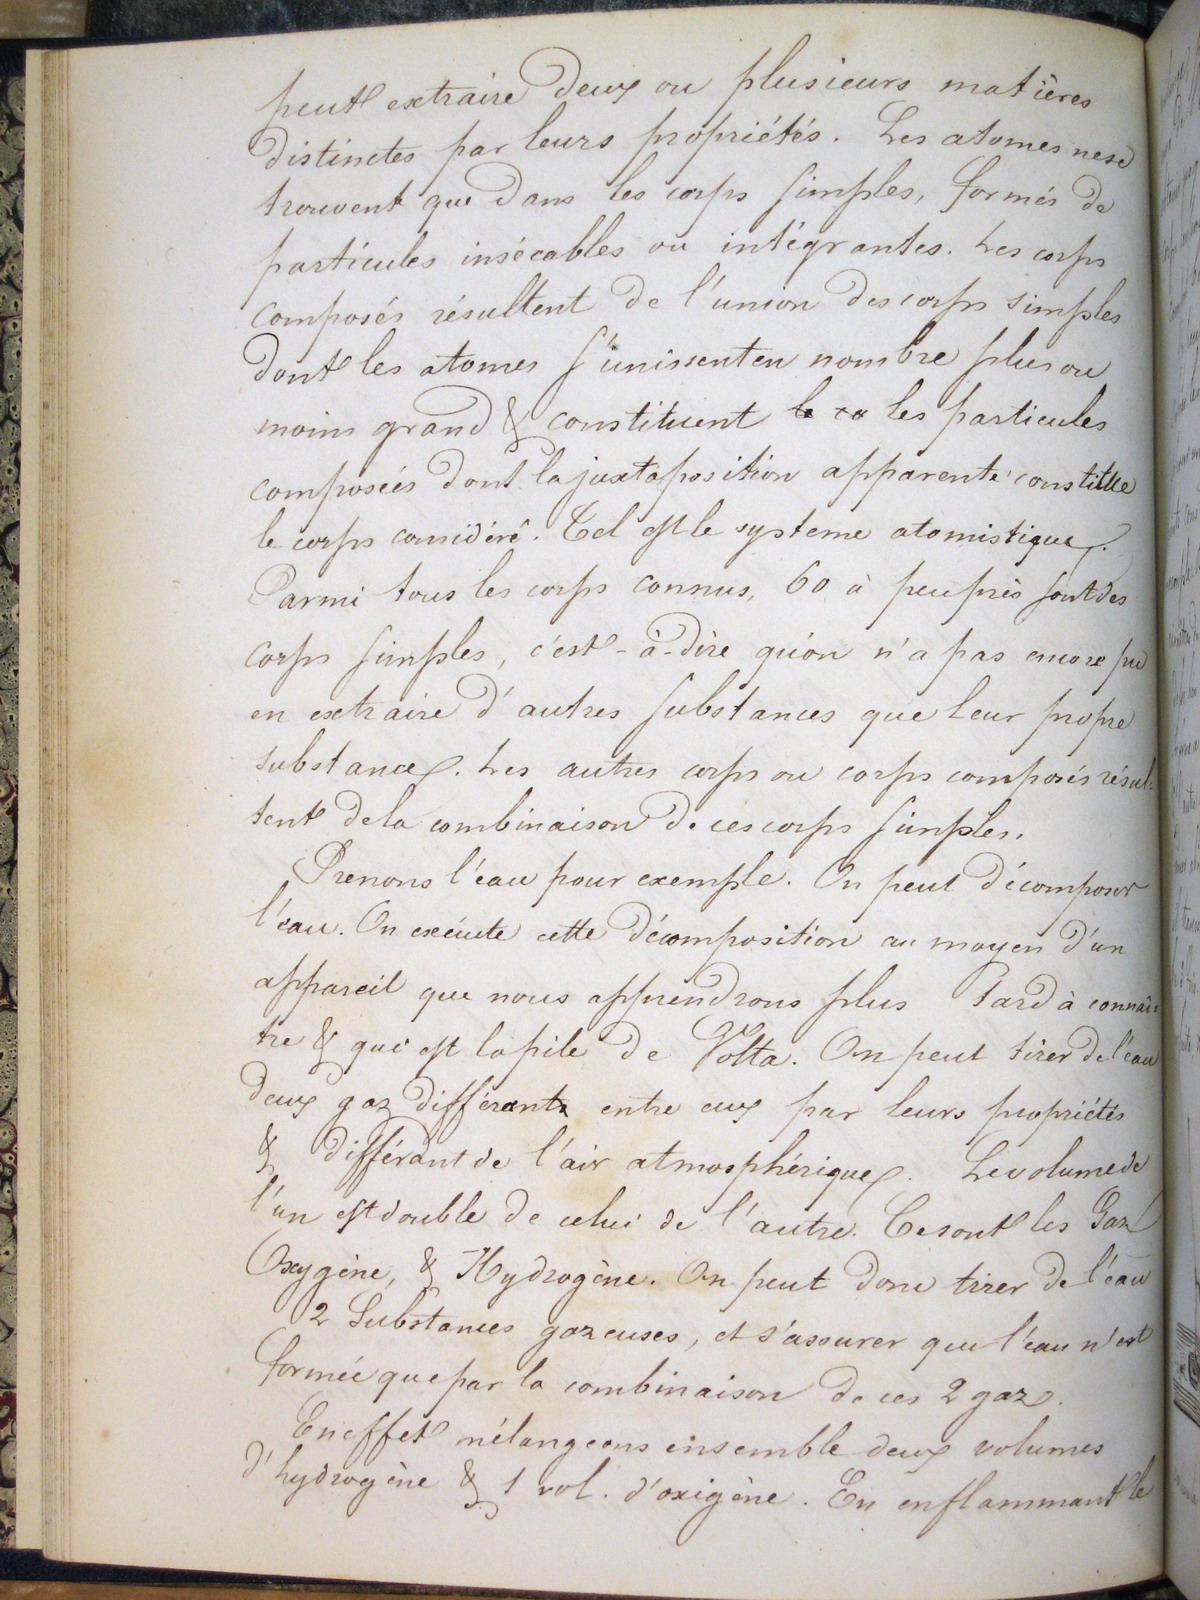 peut extraire deux ou plusieurs matières
distinctes par leurs propriétés. Les atomes ne se
trouvent que dans les corps simples, formés de
particules insécables ou intégrantes. Les corps
composés résultent de l'union des corps simples
dont les atomes s'unissent en nombre plus ou
moins grand & constituent les particules
composées dont la juxtaposition apparente constitue
le corps considéré. Tel est le systeme atomistique.
Parmi tous les corps connus, 60 à peu près sont des
corps simples, c'est-à-dire qu'on n'a pas encore pu
en extraire d'autres substances que leur propre
substance. Les autres corps ou corps composés résul-
tent de la combinaison de ces corps simples.
Prenons l'eau pour exemple. On peut décomposer
l'eau. On exécute cette décomposition au moyen d'un
appareil que nous apprendrons plus tard à connaî-
tre & qui est la pile de Volta. On peut tirer de l'eau
deux gaz différents entre eux par leurs propriétés
& différant de l'air atmosphérique. Le volume de
l'un est double de celui de l'autre. Ce sont les Gaz
Oxygène, & Hydrogène. On peut donc tirer de l'eau
2 Substances gazeuses, et s'assurer que l'eau n'est
formée que par la combinaison de ces 2 gaz.
En effet mélangeons ensemble deux volumes
d'hydrogène & 1 vol. d'oxigène. En enflammant le